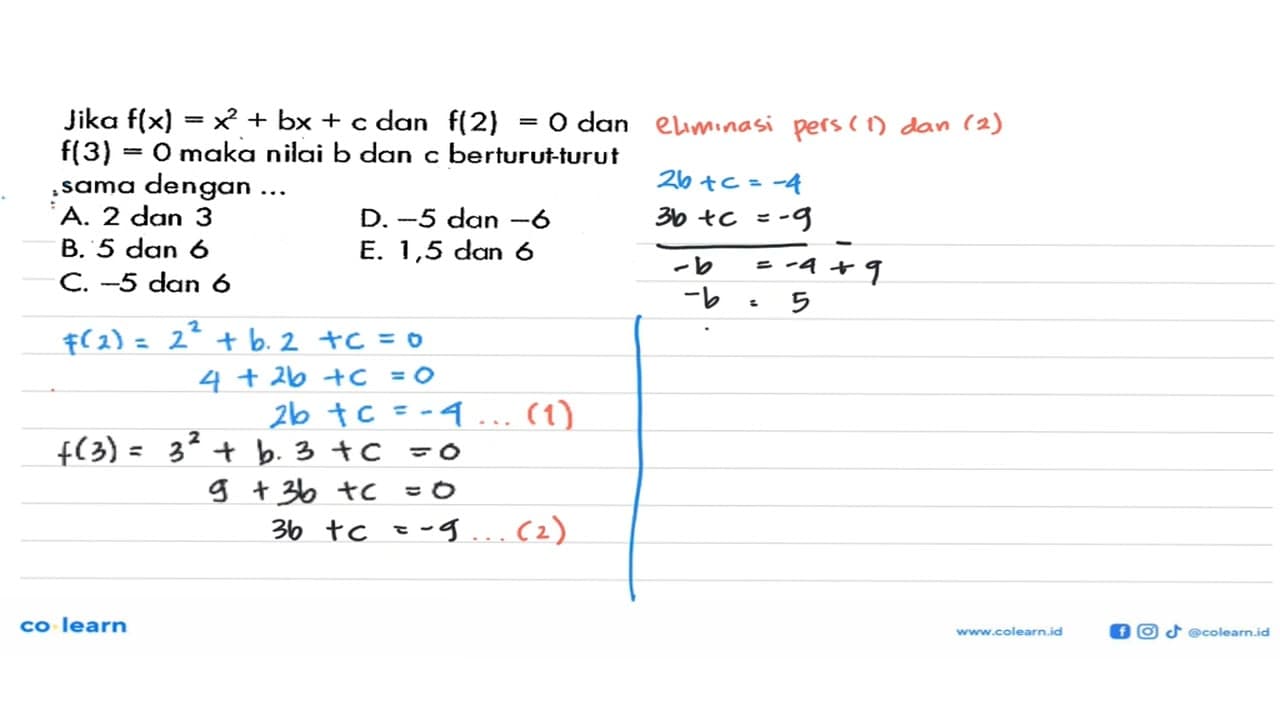 Jika f(x) = x² + bx + c dan f(2) = 0 dan
f(3) = 0 maka nilai b dan c berturut-turut
sama dengan ...
A. 2 dan 3
D. –5 dan –6
B. 5 dan 6
E. 1,5 dan 6
C. –5 dan 6
f(2) = 2² + b. 2 + c = 0
4 + 2b + c = 0
2b + c = -4 ... (1)
f(3) = 3² + b. 3 + c = 0
9 + 3b + c = 0
3b + c = -9 ... (2)
eliminasi pers (1) dan (2)
2b + c = -4
3b + c = -9 -
-b = -4 + 9
-b = 5
co learn
www.colearn.id
@colearn.id